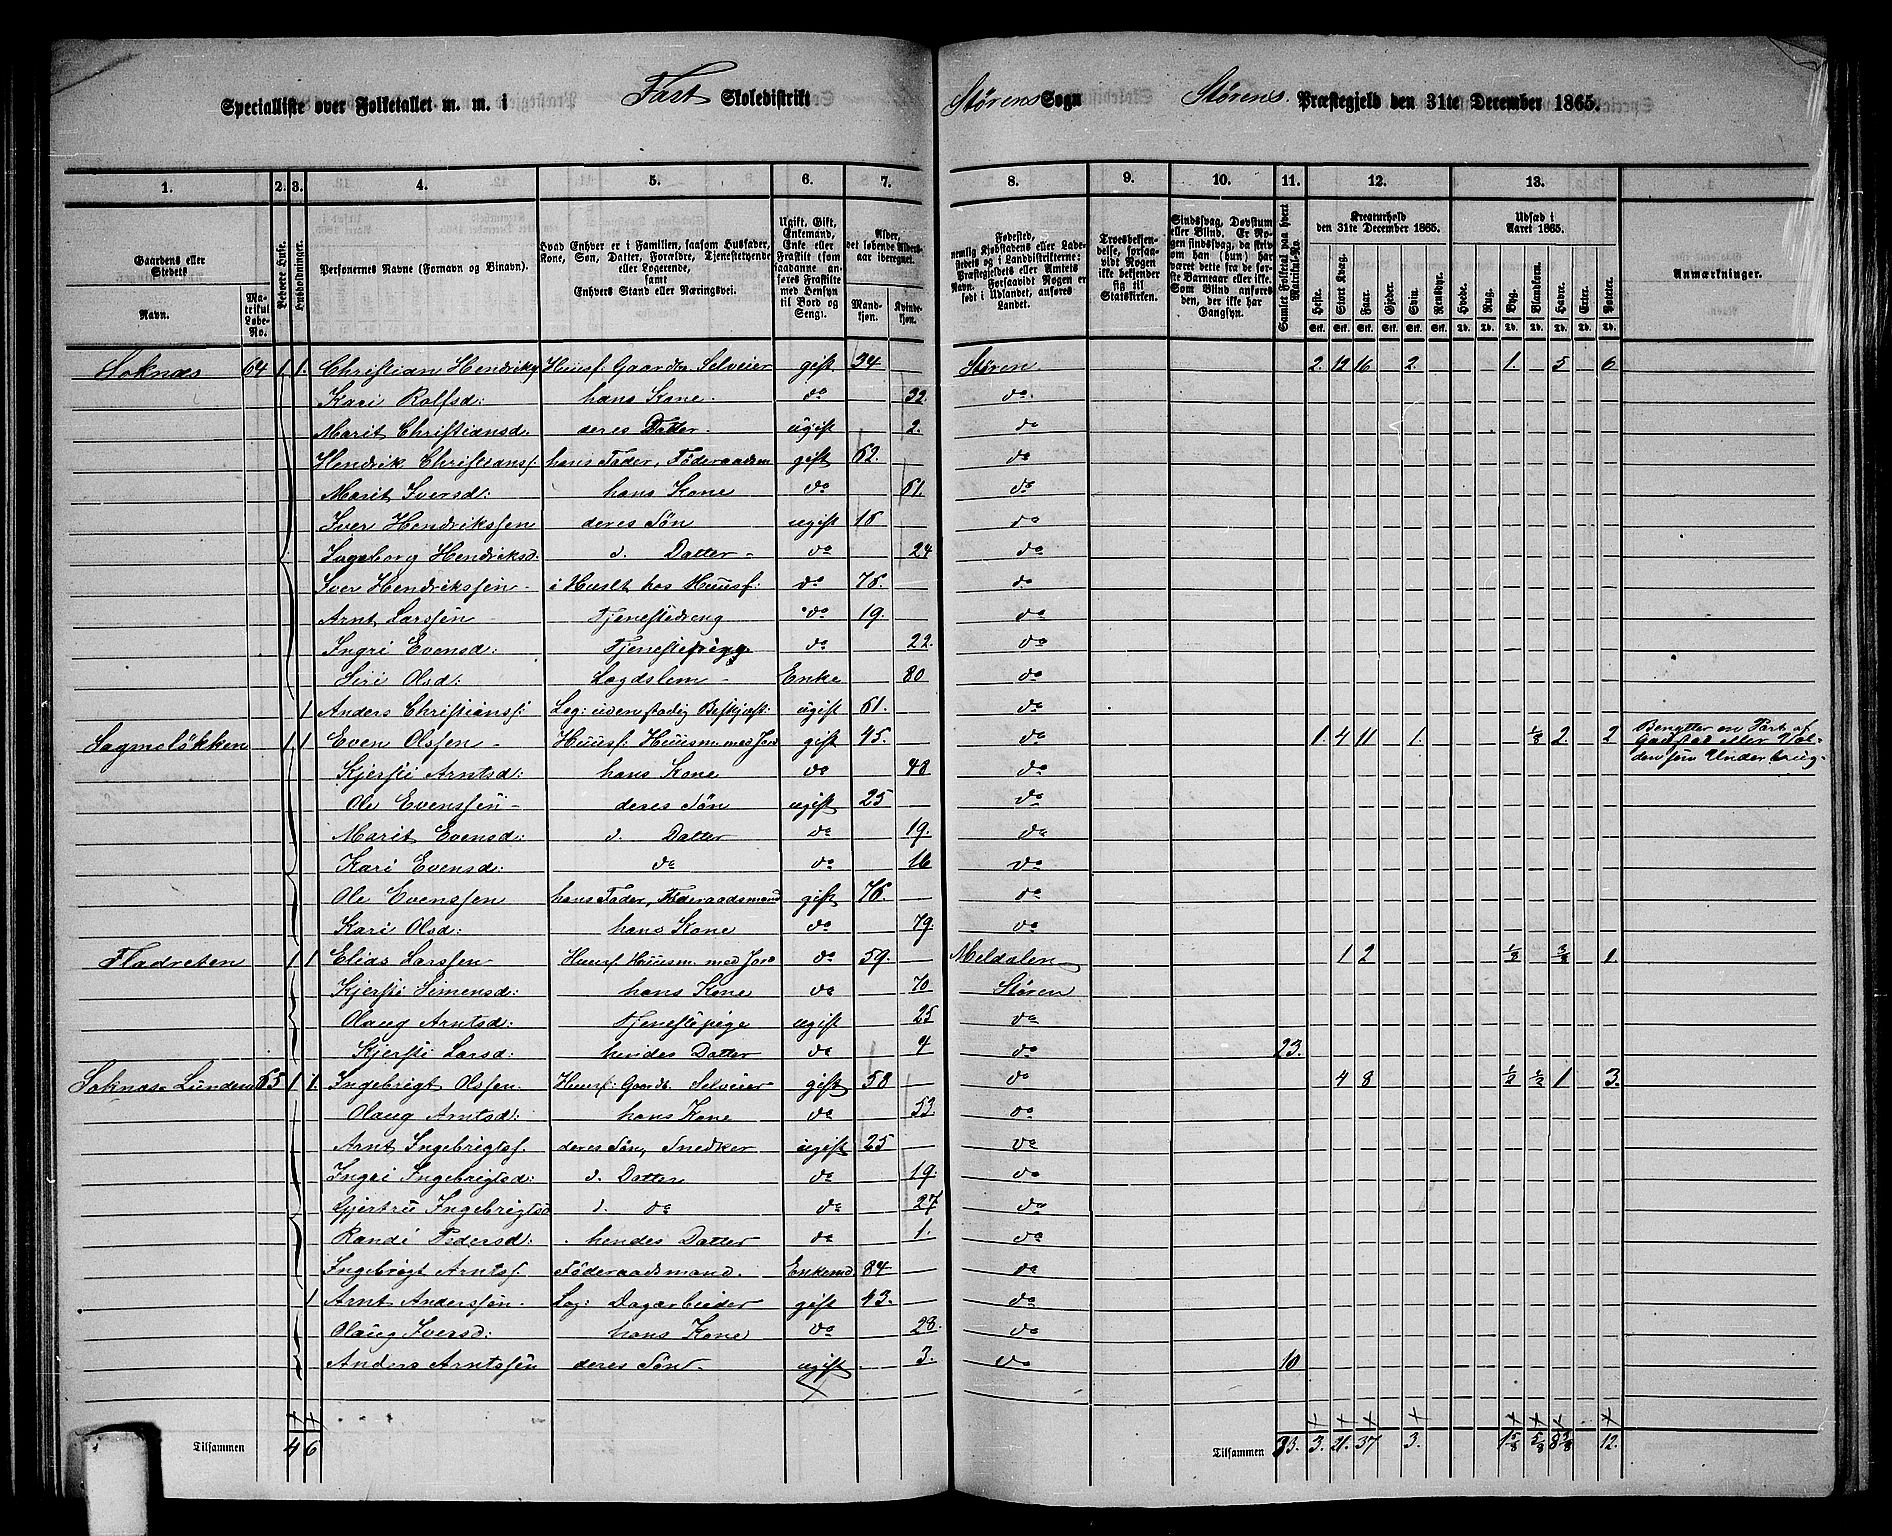 Specialliste over Folketallet m. m. i Fast Skoledistrikt Størens Sogn Størens Præstegjeld den 31te December 1865.
1. 2. 3. 4. 5. 6. 7. 8. 9. 10. 11. 12. 13.
Gaardens eller Stedets
Navn. Matrikul Løbe-No.
Beboede Huse.
Husholdninger.
Personernes Navne (Fornavn og Binavn).
Hvad Enhver er i Familien, saasom Husfader, Kone, Søn, Datter, Forældre, Tjenestetyende eller Logerende, samt Enhvers Stand eller Næringsvei.
Ugift, Gift, Enkemand, Enke eller Fraskilt (som saadanne anføres Fraskilte med Hensyn til Bord og Seng).
Alder, det løbende Alders-aar iberegnet.
Mandkjøn. Kvindekjøn.
Fødested, nemlig Kjøbstadens eller Ladestedets og i Landdistrikterne: Præstegjeldets eller Amtets Navn. Forsaavidt Nogen er født i Udlandet, anføres Landet.
Troesbekjendelse, forsaavidt Nogen ikke bekjender sig til Statskirken.
Sindssvag, Døvstum eller Blind. Er Nogen sindssvag, da skriv om han (hun) har været dette fra de første Barneaar eller ikke. Som Blind anføres den, der ikke har Gangsyn.
Samlet Folketal paa hvert Matrikul-No.
Kreaturhold den 31te December 1865.
Heste. Stort Kvæg. Faar. Gjeder. Svin. Rensdyr.
Udsæd i Aaret 1865.
Hvede. Rug. Byg. Blandkorn. Havre. Erter. Poteter.
Anmærkninger.
Soknæs 64 1 1 Christian Hendriks Huusf. Gaardbr. Selveier gift 34 Støren 2. 12 16 2. 1. 5 6
Kari Rolfsd: hans Kone. do 32. do
Marit Christiansd. deres Datter. ugift 2. do
Hendrik Christians: hans Fader, Føderaadsm gift 62. do
Marit Iversd: hans Kone do 61. do
Iver Hendrikssen deres Søn ugift 16 do
Ingeborg Hendriksd. d. Datter - do 24 do
Iver Hendrikssen - i Huslt hos Huusf: do 76. do
Arnt Larssen - Tjenestedreng do 19. do
Ingri Evensd: Tjenestepige do 22. do
Siri Olsd: Lægdslem - Enke 80 do
1 Anders Christians: Log: uden stadig Beskjæft: ugift 61. do
Sagmoløkken 1 1 Even Olssen - Huusf: Huusm. med Jord gift 45. do 1. 4 11 1. 1/8 2. 2 Benytter en Part af
Kjersti Arntsd: hans Kone do 48 do
Ole Evenssen - deres Søn ugift 25 do
Marit Evensd: d. Datter do 19. do
Kari Evensd: do do 16 do
Ole Evenssen hans Fader, Føderaadsmand gift 76. do
Kari Olsd: hans Kone do 79. do
Fladreten 1 1 Elias Larssen - Huusf. Huusm. med Jord do 59. Meldalen 1 2 3/8 1.
Kjersti Simensd: hans Kone do 70 Støren
Olaug Arntsd: Tjenestepige ugift 25 do
Kjersti Larsd: hendes Datter do 4 do 23.
Soknæs Lunden 65 1 1. Ingebrigt Olssen. Huusf: Gaardbr. Selveier gift 58 do 4 8 1/2 1/2 1 3.
Olaug Arntsd: hans Kone do 53. do
Arnt Ingebrigtsf. deres Søn, Snedker ugift 25 do
Ingri Ingebrigtsd: d. Datter do 19. do
Gjertru Ingebrigtsd d. do do 27 do
Randi Pedersd: hendes Datter do 1. do
Ingebrigt Arntsf. Føderaadsmand. Enkemd 84 do
1 Arnt Anderssen. Log: Dagarbeider gift 43. do
Olaug Iversd: hans Kone do 28. do
Anders Arntssen deres Søn ugift 3. do 10
Tilsammen 4 6 Tilsammen 33. 3. 21. 37 3. 1 5/8 5/8 8 3/8 12.